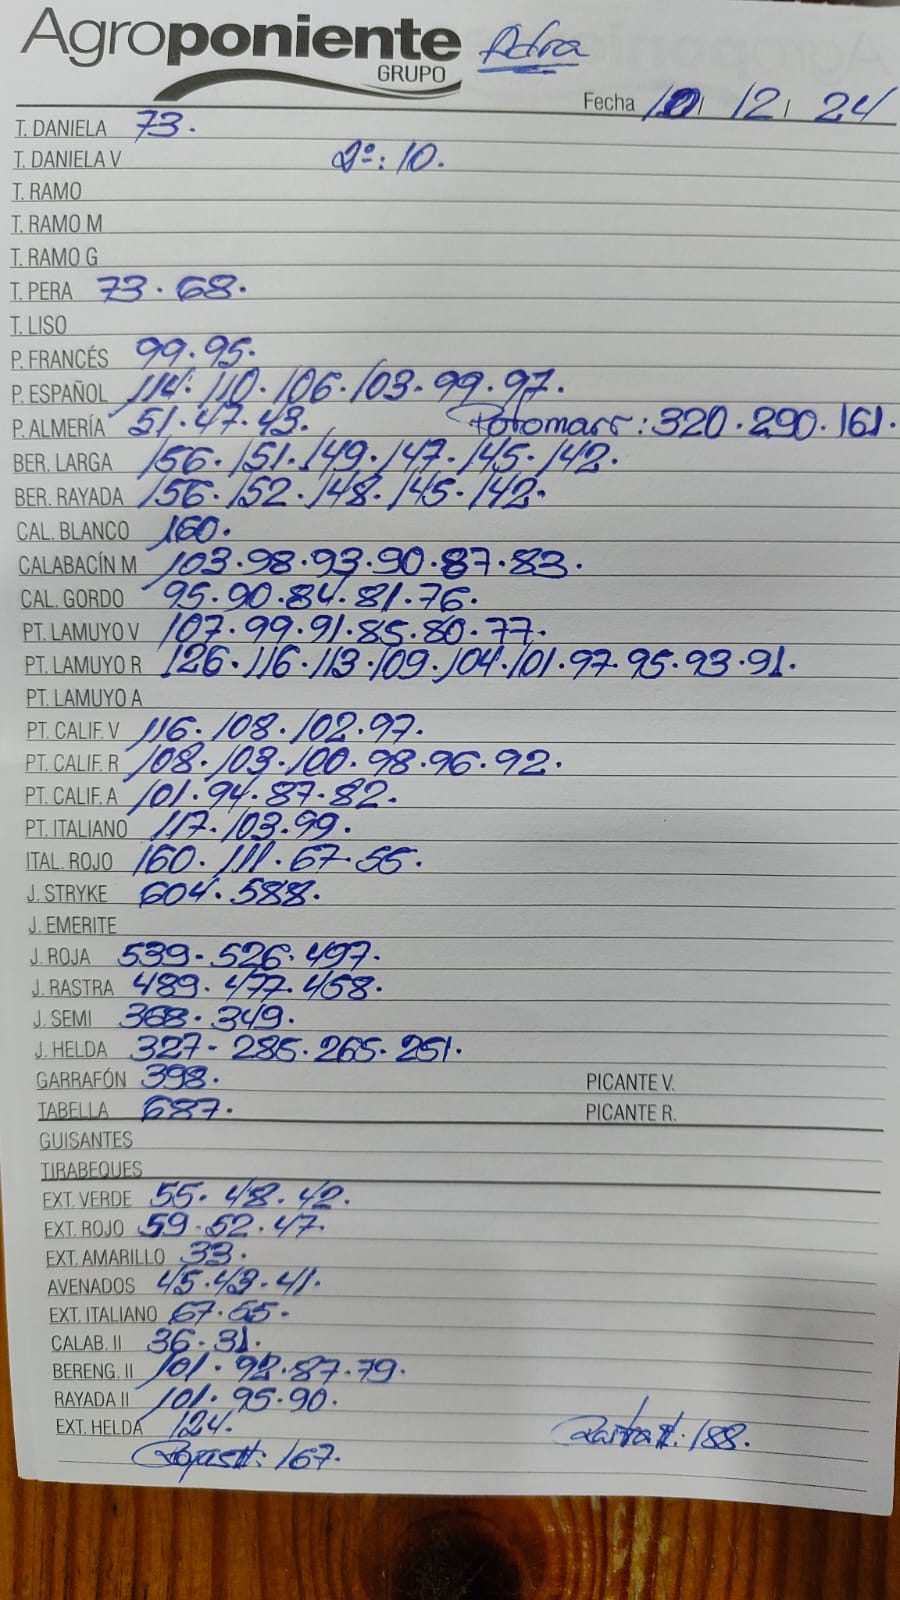 Agroponiente Adra
GRUPO
Fecha 10 / 12 / 24
T. DANIELA 73.
T. DANIELA V 2º: 10.
T. RAMO
T. RAMO M
T. RAMO G
T. PERA 73. 68.
T. LISO
P. FRANCÉS 99. 95.
P. ESPAÑOL 114. 110. 106. 103. 99. 97.
P. ALMERÍA 51. 47. 43. Potomarr: 320. 290. 161.
BER. LARGA 156. 151. 149. 147. 145. 142.
BER. RAYADA 156. 152. 148. 145. 142.
CAL. BLANCO 160.
CALABACÍN M 103. 98. 93. 90. 87. 83.
CAL. GORDO 95. 90. 84. 81. 76.
PT. LAMUYO V 107. 99. 91. 85. 80. 77.
PT. LAMUYO R 126. 116. 113. 109. 104. 101. 97. 95. 93. 91.
PT. LAMUYO A
PT. CALIF. V 116. 108. 102. 97.
PT. CALIF. R 108. 103. 100. 98. 96. 92.
PT. CALIF. A 101. 94. 87. 82.
PT. ITALIANO 117. 103. 99.
ITAL. ROJO 160. 111. 67. 55.
J. STRYKE 604. 588.
J. EMERITE
J. ROJA 539. 526. 497.
J. RASTRA 489. 477. 458.
J. SEMI 368. 349.
J. HELDA 327. 285. 265. 251.
GARRAFÓN 398. PICANTE V.
TABELLA 687. PICANTE R.
GUISANTES
TIRABEQUES
EXT. VERDE 55. 48. 42.
EXT. ROJO 59. 52. 47.
EXT. AMARILLO 33.
AVENADOS 45. 43. 41.
EXT. ITALIANO 67. 55.
CALAB. II 36. 31.
BERENG. II 101. 92. 87. 79.
RAYADA II 101. 95. 90.
EXT. HELDA 124. Rastra II: 188.
Rojas II: 167.